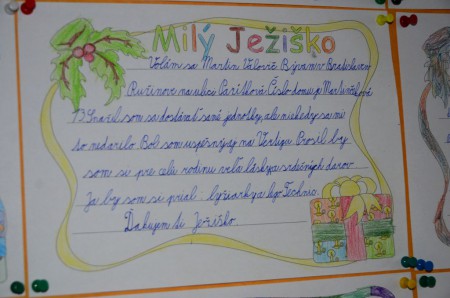 Milý Ježiško
Volám sa Martin Bývam v Bratislave
Ružinove na ulice Číslo domu je
73 Snažil som sa dostávať samé jednotky, ale niekedy sa mi
to nedarilo. Bol som úspešný aj na Prosil by
som si pre celú rodinu veľa lásky a srdečných darov.
Ja by som si prial lyžiarky a lego Technic.
Ďakujem ti Ježiško